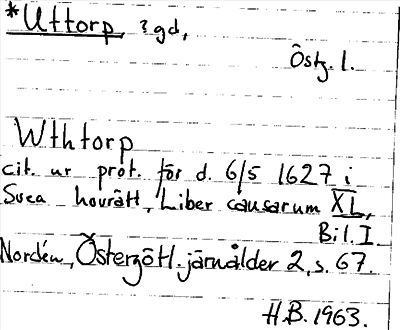 *Uttorp, ? gd,
Östg. l.
Wthtorp
cit. ur prot. för d. 6/5 1627 i
Svea hovrätt, Liber causarum XL,
Bil. I.
Nordén, Östergötl. järnålder 2, s. 67.
H.B. 1963.